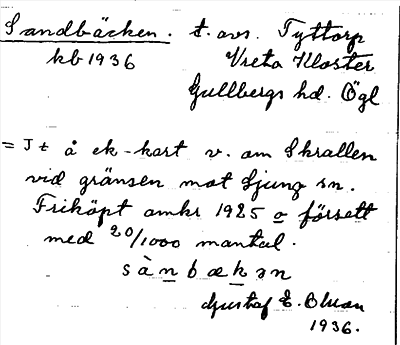 Sandbäcken. t. avs. Tyttorp
kb 1936 Vreta Kloster
Gullbergs hd. Ögl
= Jt å ek-kart v. om Skrallen
vid gränsen mot Ljung sn.
Friköpt omkr 1925 o försett
med 20/1000 mantal.
sànbækən
Gustaf E.
1936.